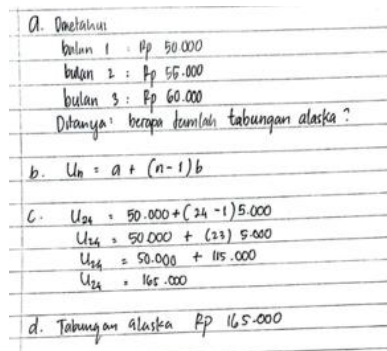 a. Diketahui
bulan 1 : Rp 50.000
bulan 2 : Rp 55.000
bulan 3 : Rp 60.000
Ditanya : berapa jumlah tabungan alaska ?
b. Un = a + (n-1)b
c. U24 = 50.000 + (24 - 1) 5.000
U24 = 50.000 + (23) 5.000
U24 = 50.000 + 115.000
U24 = 165.000
d. Tabungan alaska Rp 165.000